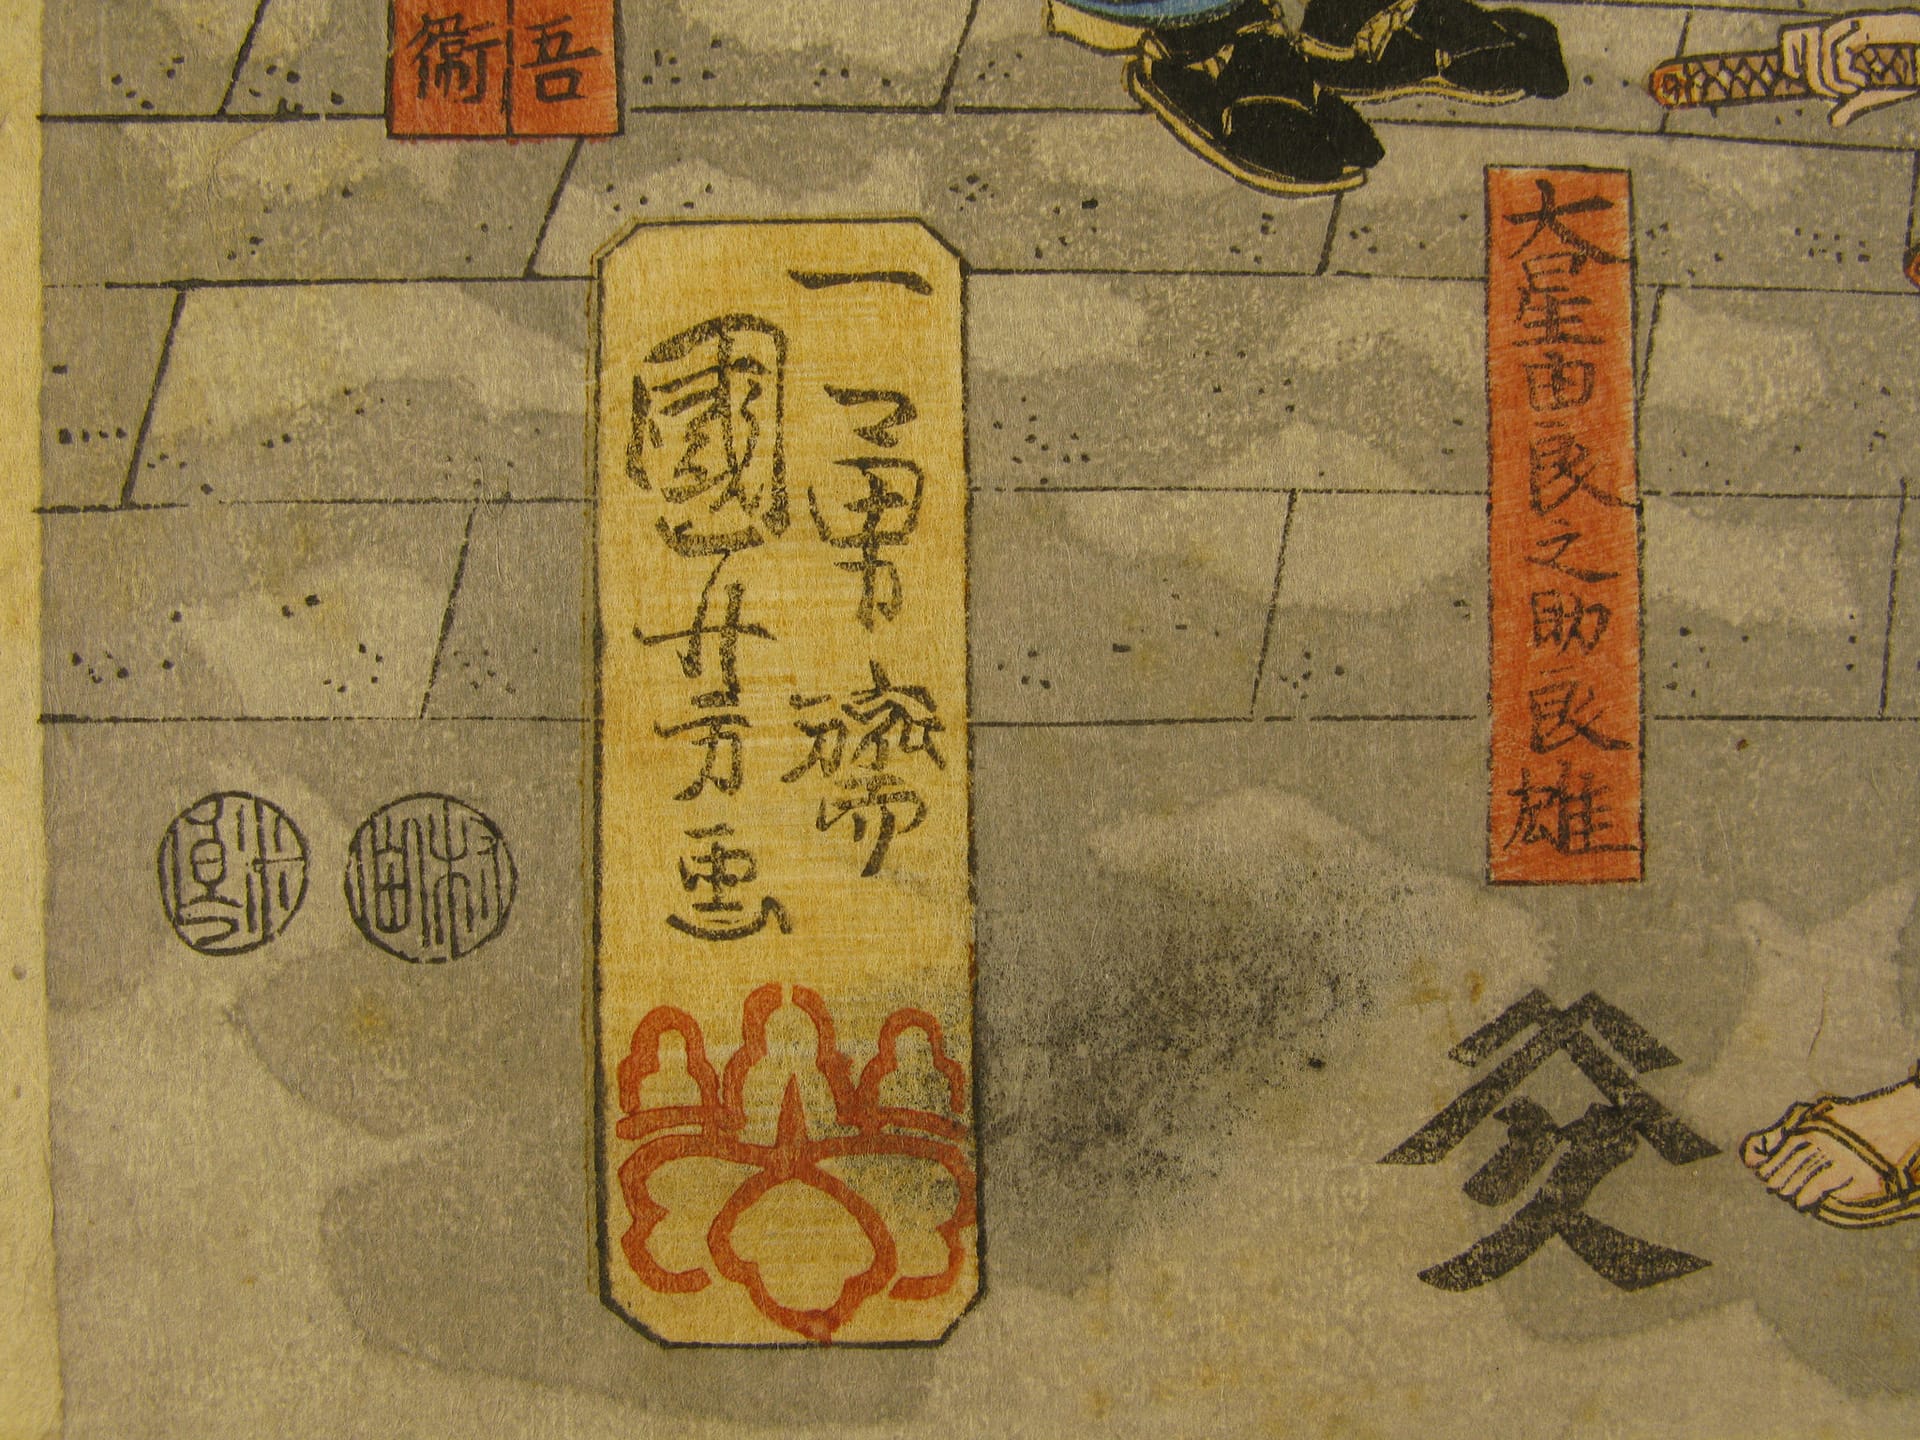 大星由良之助良雄
吾
衛
一勇齋
國芳画
村田
米良
久